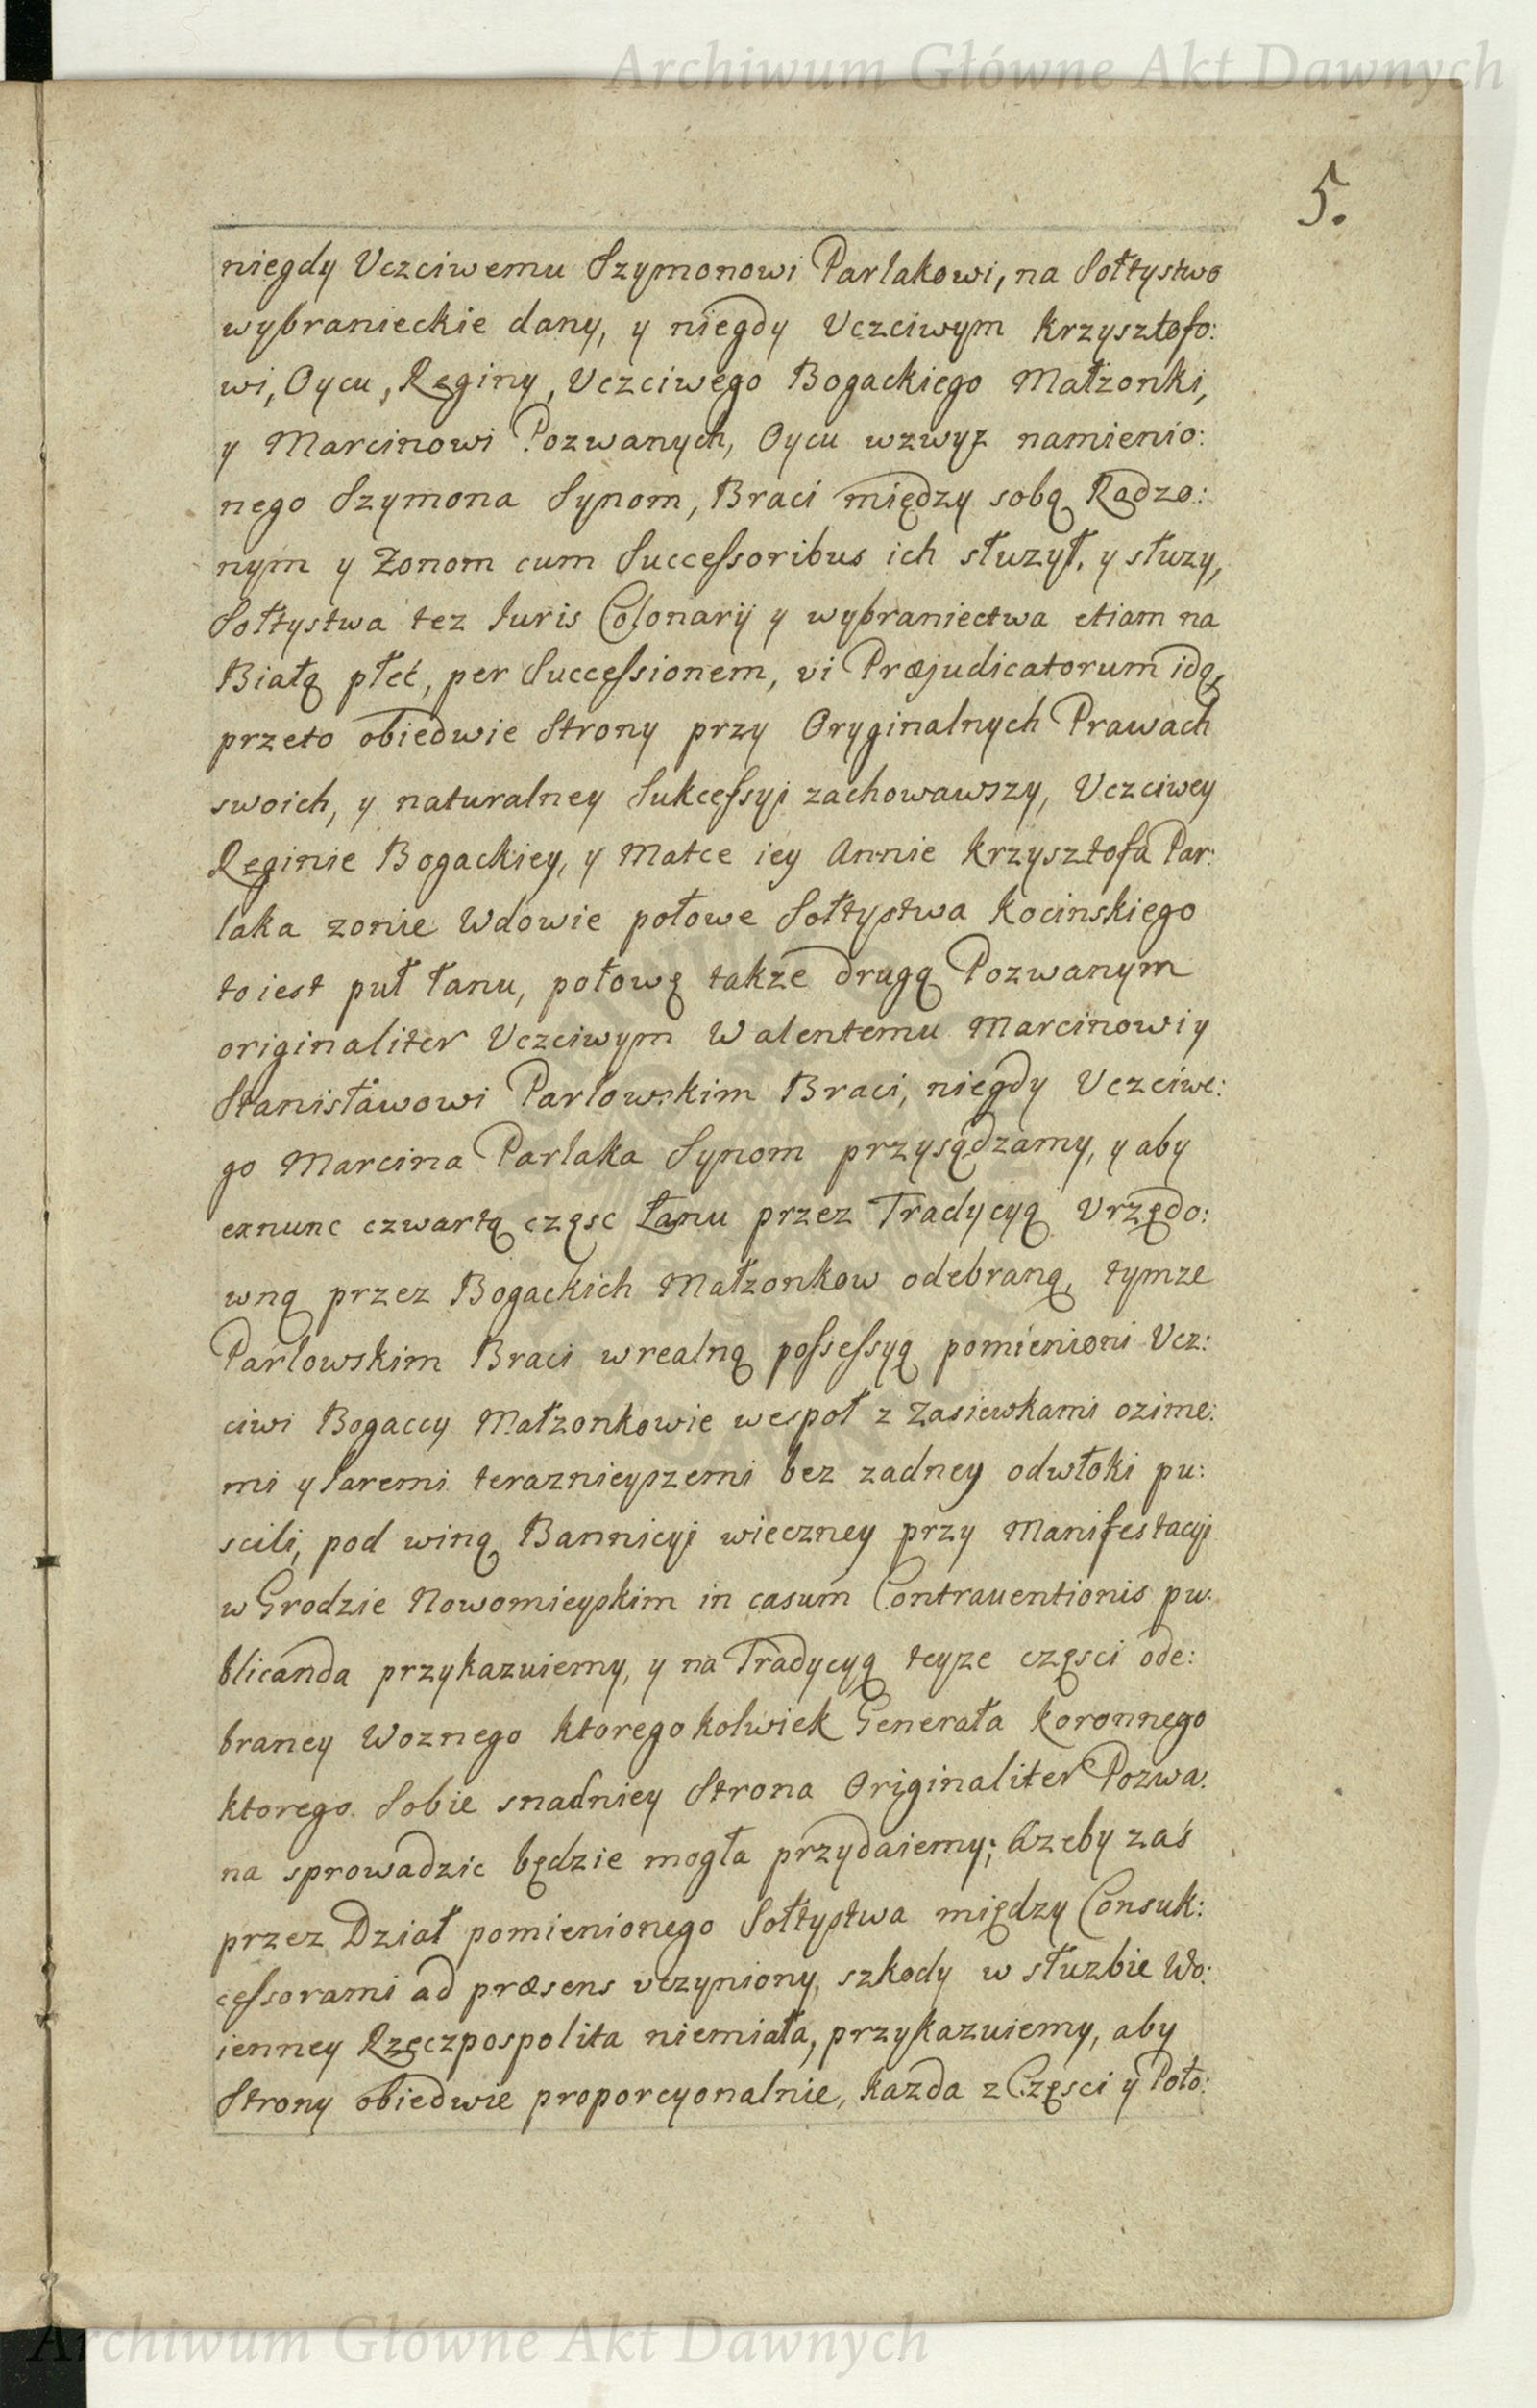 Archiwum Główne Akt Dawnych
5.
niegdy Uczciwemu Szymonowi Parlakowi, na Sołtystwo
wybranieckie dany, y niegdy Uczciwym Krzysztofo:
wi, Oycu, Reginy, Uczciwego Bogackiego Małzonki,
y Marcinowi Pozwanych, Oycu wzwyz namienio:
nego Szymona Synom, Braci między sobą Rodzo:
nym y Zonom cum Successoribus ich słuzył, y słuzy,
Sołtystwa tez Iuris Colonarij y wybraniectwa etiam na
Białą płeć, per Successionem, vi Præjudicatorum idą,
przeto obiedwie Strony przy Oryginalnych Prawach
swoich, y naturalney Sukcessyi zachowawszy, Uczciwey
Reginie Bogackiey, y Matce iey Annie Krzysztofa Par:
laka zonie Wdowie połowe Sołtystwa Kocinskiego
to iest puł łanu, połowę takze drugą Pozwanym
originaliter Uczciwym Walentemu Marcinowi y
Stanisławowi Parlowskim Braci, niegdy Uczciwe:
go Marcina Parlaka Synom przysądzamy, y aby
exnunc czwartą częsc Łanu przez Tradycyą Urzędo:
wną przez Bogackich Małzonkow odebraną, tymze
Parlowskim Braci w realną possessyą pomienioni Ucz:
ciwi Bogaccy Małzonkowie wespoł z Zasiewkami ozime:
mi y Iaremi teraznieyszemi bez zadney odwłoki pu:
scili, pod winą Bannicyi wieczney przy Manifestacyi
w Grodzie Nowomieyskim in casum Contraventionis pu:
blicanda przykazuiemy, y na Tradycyą teyze częsci ode:
braney Woznego ktoregokolwiek Generała Koronnego
ktorego Sobie snadniey Strona Originaliter Pozwa:
na sprowadzic będzie mogła przydaiemy; Azeby zaś
przez Dział pomienionego Sołtystwa między Consuk:
cessorami ad præsens uczyniony, szkody w słuzbie Wo:
ienney Rzeczpospolita niemiała, przykazuiemy, aby
Strony obiedwie proporcyonalnie, kazda z Częsci y Poło:
Archiwum Główne Akt Dawnych